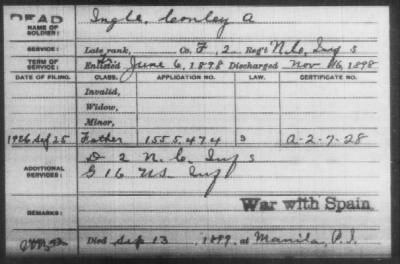 DEAD
NAME OF SOLDIER: Ingle, Conley A
SERVICE: Late rank, Co. F, 2 Reg't N.C. Inf s
TERM OF SERVICE: Enlisted June 6, 1898 Discharged Nov 16, 1898
DATE OF FILING. CLASS. APPLICATION NO. LAW. CERTIFICATE NO.
Invalid,
Widow,
Minor,
1926 Sep 25 Father 1555,474 3 A-2-7-28
ADDITIONAL SERVICES: D 2 N.C. Inf s
G 16 U.S. Inf
War with Spain
REMARKS:
Died Sep 13, 1899, at Manila, P.I.